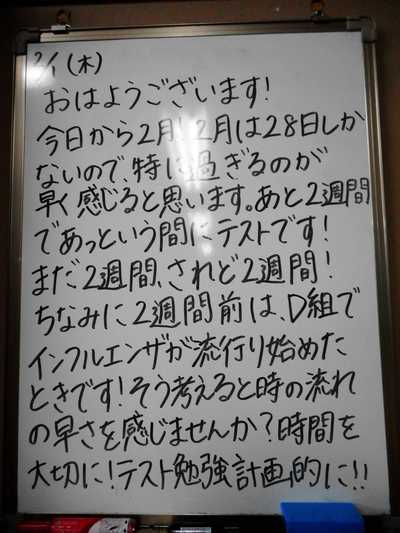 2/1(木)
おはようございます!
今日から2月!2月は28日しか
ないので、特に過ぎるのが
早く感じると思います。あと2週間
であっという間にテストです!
まだ2週間、されど2週間!
ちなみに2週間前は、D組で
インフルエンザが流行り始めた
ときです!そう考えると時の流れ
の早さを感じませんか?時間を
大切に!テスト勉強計画的に!!